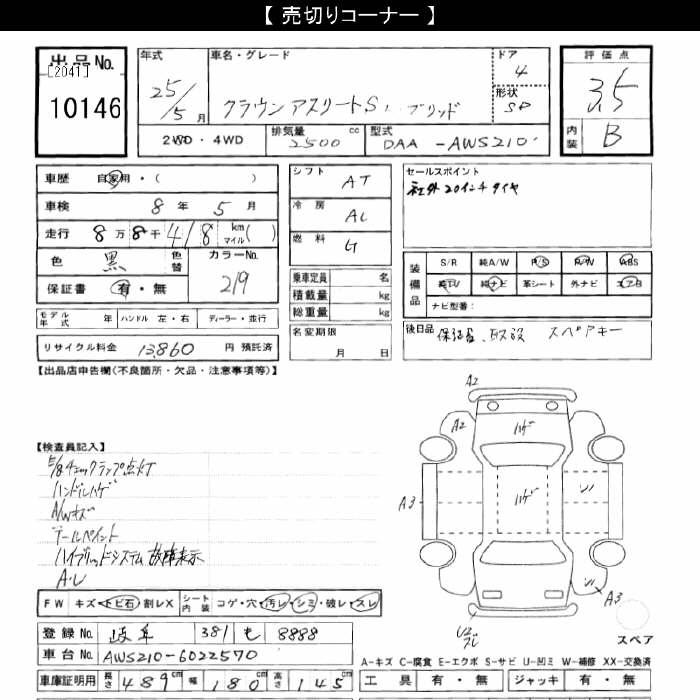 【 売切りコーナー 】
出品 No.
[2041]
10146
年式
25/5 月
車名・グレード
クラウン アスリートS ハイブリッド
ドア
4
形状
SD
2WD ・ 4WD
排気量
2500 cc
型式
DAA - AWS210
評価点
3.5
内装
B
車歴 自家用 ・( )
車検 8 年 5 月
走行 8 万 8 千 418 km マイル ( )
色 黒 色替
カラーNo.
219
保証書 有 ・ 無
シフト
AT
冷房
AC
燃料
G
乗車定員 名
積載量 kg
総重量 kg
名変期限
月 日
セールスポイント
社外20インチタイヤ
装備品
S/R 純A/W P/S P/W ABS
純TV 純ナビ 革シート 外ナビ エアB
ナビ型番:
後日品 保証書、取説 スペアキー
モデル年式 年 ハンドル 左・右 ディーラー・並行
リサイクル料金 13,860 円 預託済
【出品店申告欄(不良箇所・欠品・注意事項等)】
【検査員記入】
チェックランプ点灯
ハンドルハゲ
A/Wキズ
テールペイント
ハイブリッドシステム故障表示
A・U
FW キズ・トビ石・割レX シート内装 コゲ・穴・汚レ・シミ・破レ・スレ
登録No. 岐阜 381 も 8888
車台No. AWS210-6022570
車庫証明用 長さ 489 cm 幅 180 cm 高さ 145 cm
A2
A2
ハゲ
A3
ハゲ
A3
スペア
A-キズ C-腐食 E-エクボ S-サビ U-凹ミ W-補修 XX-交換済
工具 有 ・ 無 ジャッキ 有 ・ 無